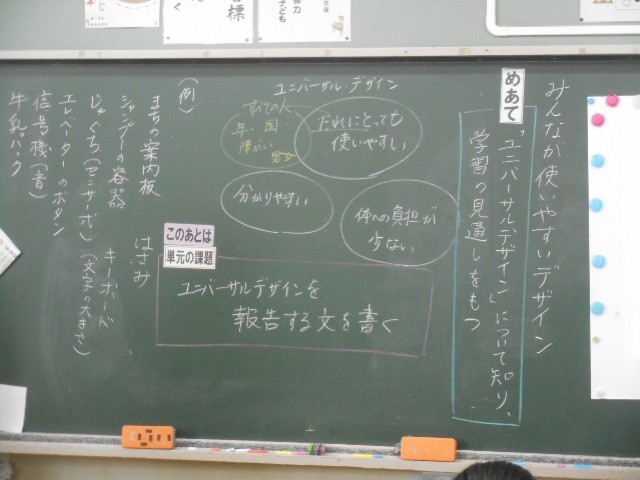 みんなが使いやすいデザイン
めあて
「ユニバーサルデザイン」について知り、
学習の見通しをもつ
ユニバーサル・デザイン
だれにとっても
使いやすい
すべての人
年、国
障がい
分かりやすい
体への負担が
少ない
このあとは
単元の課題
ユニバーサルデザインを
報告する文を書く
(例)
まちの案内板
シャンプーの容器
じゃぐち(センサー式)
エレベーターのボタン
信号機(青)
牛乳パック
はさみ
キーボード
(文字の大きさ)
標
く
体力
子ども